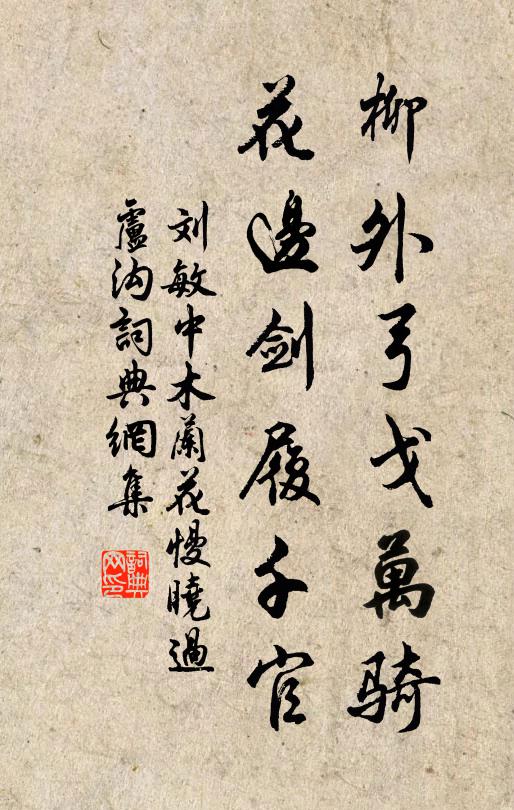 柳外弓戈萬騎
花邊劍履千官
刘敏中木蘭花慢曉過
盧溝詞典網集
詞典网印